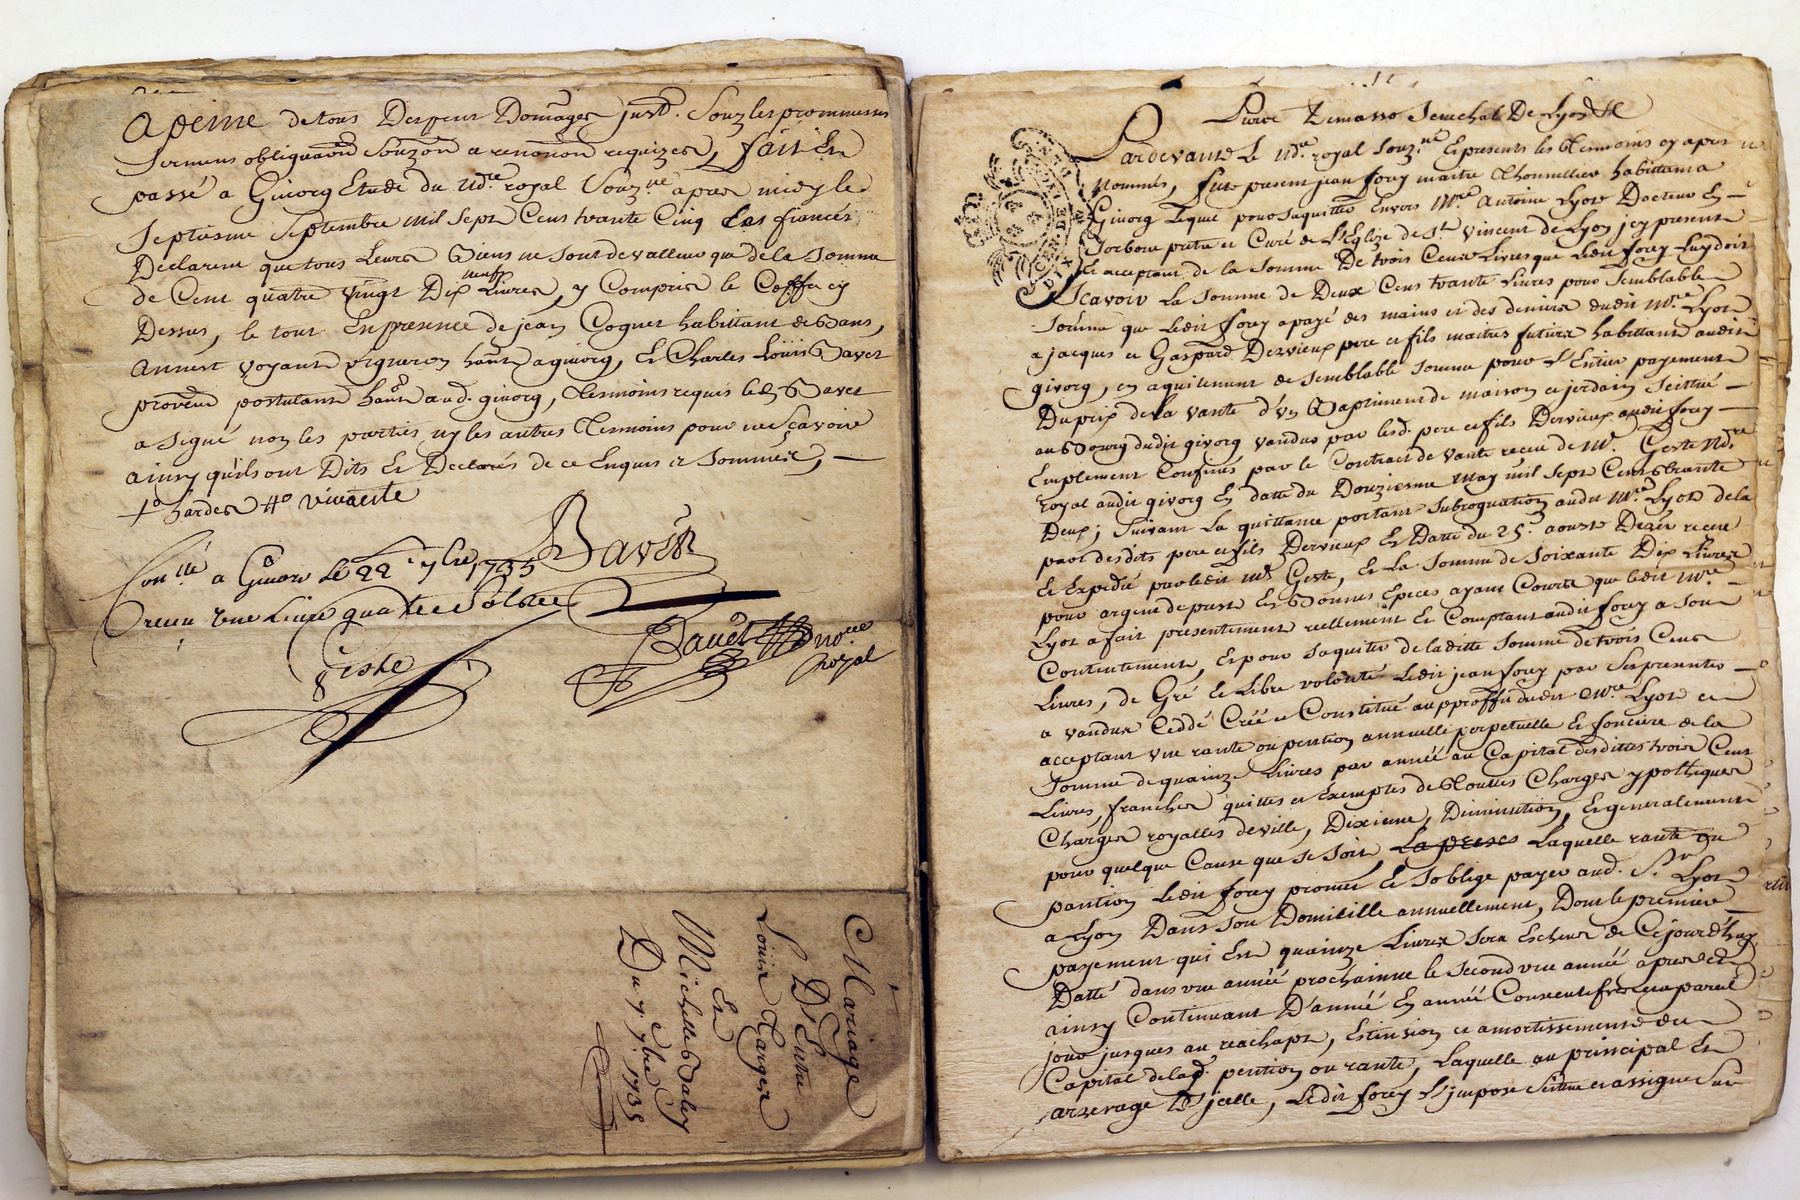 A peine de tous Despens Domages just. Souz les prommesses
sermens obligaōn Soûzōn a renonōn requizes, fait Et
passé a Givorg Etude du nd.re royal Souz.né apres midy le
Septiesme Septembre mil Sept Cens trante Cinq Les fiancés
Declarent que tous Leurs Biens ne sont de valleur que de la Somme
de Cent quatre vingt Dix neufz Livres, y Compris le Coffre cy
Dessus, le tout En presence de jean Coquet habittant de Bans,
Annest voyant vigneron hânt a givorg, Et Charles Loüis Bavet
postulant hânt aud. givorg, Tesmoins requis led. Bavet
a Signé non les parties ny les autres Tesmoins pour ne sçavoir
ainsy qu'ils ont Dits Et Declarés de ce Enquis et Sommés,
hardes
Con.llé a Givors Le 22e 7bre 1735
receu Une Livre quatre Sols
Bavet
Geste
Bavet no.re
Royal
Mariage
D'Entre
Louis
Et
Michelle
Du 7e 7bre 1735
Senechal De Lyon
GEN. DE LYON
DIX
Pardevant Le nd.re royal Souz.né Et presents les Tesmoins cy apres
Nommés, fut present jean forey maitre Thonnellier habittant a
Givorg Lequel pour Saquitter Envers M.re Antoine Lyot Docteur En
Sorbone pretre et Curé de L'Eglize de S.t Vincent de Lyon jcy present
Et acceptant de la Somme De trois Cens Livres que Ledit forey Luy doit
Scavoir La Somme de Deux Cens trante Livres pour Semblable
Somme que Ledit forey a payé des mains et des deniers dudit M.re Lyot
a jacques et Gaspard Dervieux pere et fils maitres futiers habittant audit
givorg, en aquitement de Semblable Somme pour L'Entier payement
Du prix de la vante d'un Baptiment de maison et jerdain Scittué
au Bourg dudit givorg vandus par lesd. pere et fils Dervieux audit forey
Emplement Confinés par le Contract de vante receu de M.e Geste nd.re
royal audit givorg En datte du Douzieme may mil Sept Cens trante
Deux; Suivant La quittance portant Subroguation audit M.re Lyot de la
part desdits pere et fils Dervieux En Datte du 25e aoust Dernier receu
Et Expedié par ledit M.e Geste, Et La Somme de Soixante Dix Livres
pour argent de prest En Bonnes Epeces ayant Courts que ledit M.re
Lyot a fait presentement reellement Et Comptant audit forey a Son
Contentement, Et pour Saquiter de laditte Somme de trois Cens
Livres, de Gré Et Libre volonté Ledit jean forey par Ses presentes
a vandux Ceddé Créé et Constitué au proffit dudit M.re Lyot et
acceptant une rante ou pention annuelle perpetuelle Et fonciere de la
Somme de quainze Livres par année au Capital desdittes trois Cens
Livres, franches quittes et Exemptes de Touttes Charges ypotheques
Charges royalles de ville, Dixieme, Diminution, Et generalement
pour quelque Cause que Se Soit Laquelle rante ou
pantion Ledit forey promet Et Soblige payer aud. S.r Lyot
a Lyon Dans Son Domicille annuellement, Dont le premier
payement qui Est quainze Livres Sera Escheu de Cejourd'huy
Datté dans une année prochainne le Second une année apres Et
ainsy Continuant D'année En année Consecutifs en pareil
jour jusques au reachapt, Extinsion et amortissement du
Capital de lad. pention ou rante, Laquelle au principal Et
arrerage D'jcelle, Ledit forey L'jmpose Scitue et assigne Sur